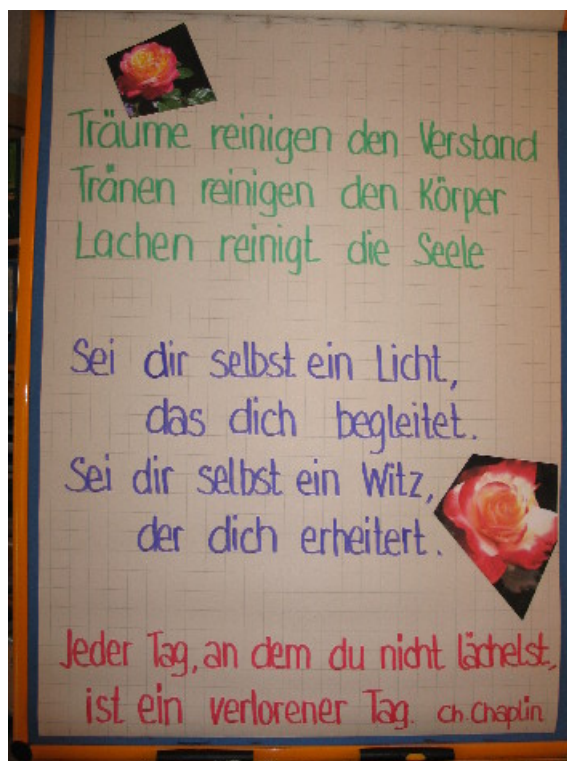 Träume reinigen den Verstand
Tränen reinigen den Körper
Lachen reinigt die Seele
Sei dir selbst ein Licht,
das dich begleitet.
Sei dir selbst ein Witz,
der dich erheitert.
Jeder Tag, an dem du nicht lächelst,
ist ein verlorener Tag. Ch. Chaplin